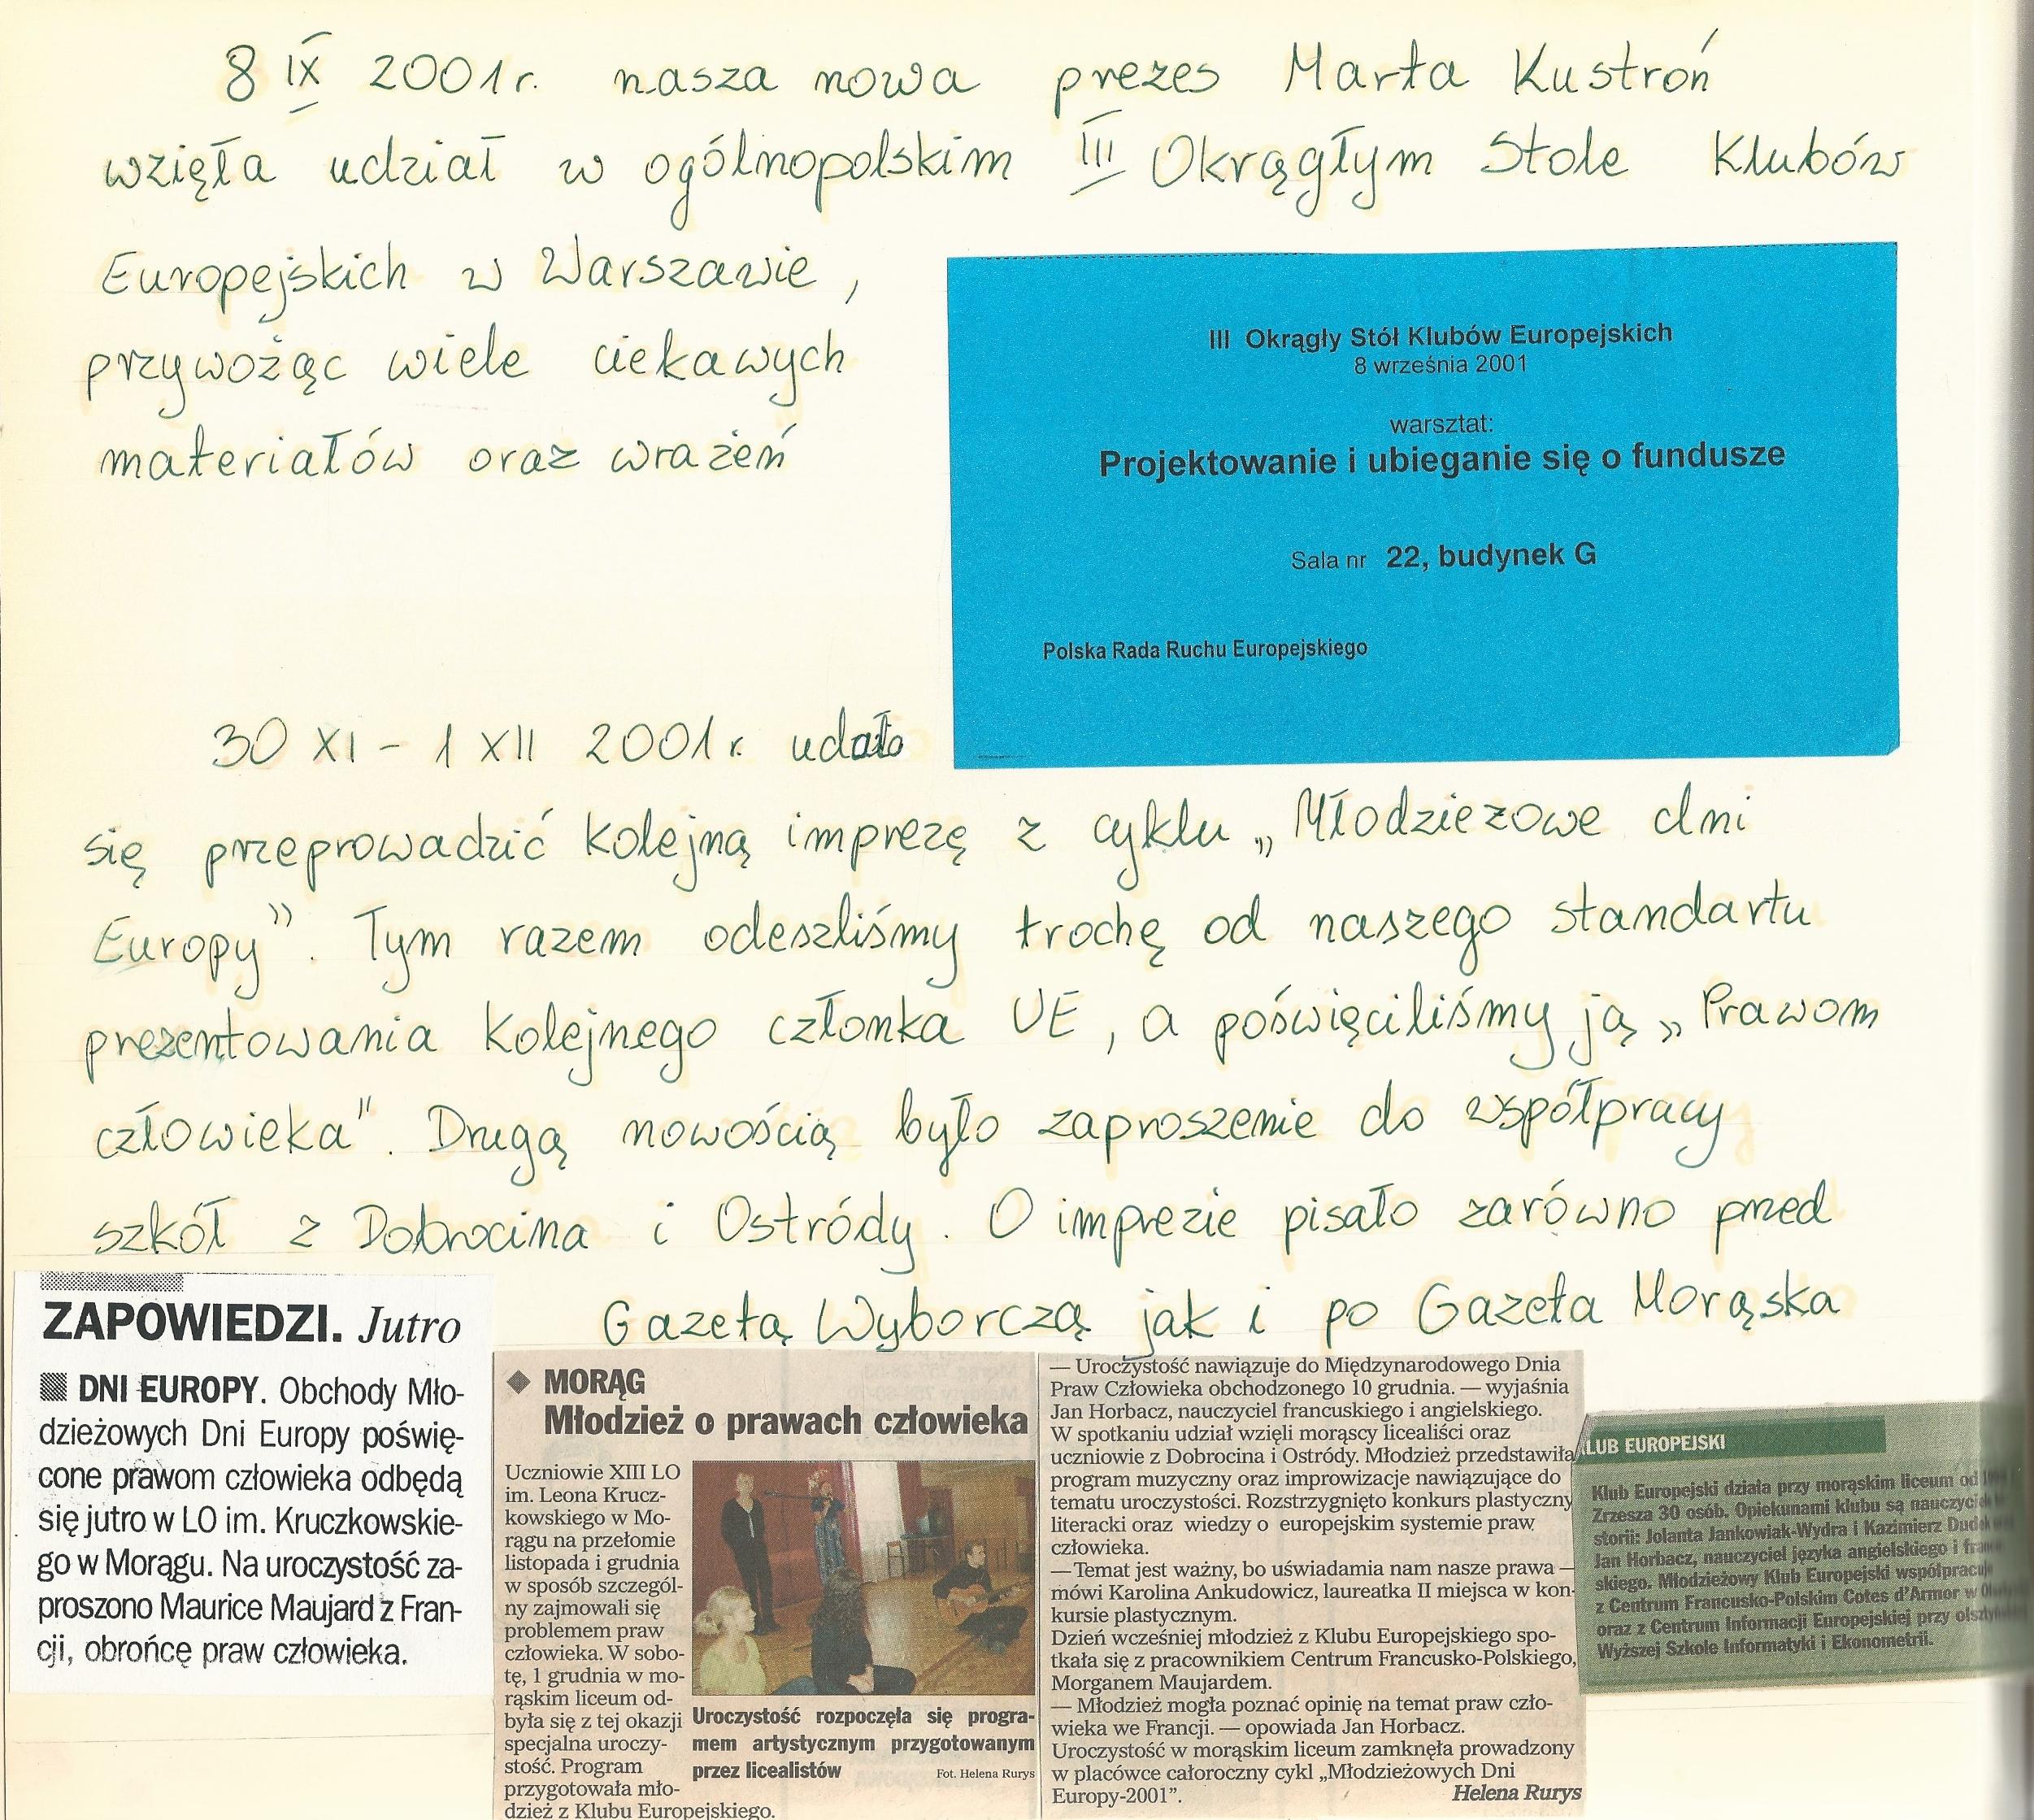 8 IX 2001r. nasza nowa prezes Marta Kustroń
wzięła udział w ogólnopolskim III Okrągłym Stole Klubów
Europejskich w Warszawie,
przywożąc wiele ciekawych
materiałów oraz wrażeń
III Okrągły Stół Klubów Europejskich
8 września 2001
warsztat:
Projektowanie i ubieganie się o fundusze
Sala nr 22, budynek G
Polska Rada Ruchu Europejskiego
30 XI - 1 XII 2001r. udało
się przeprowadzić kolejną imprezę z cyklu „Młodzieżowe dni
Europy”. Tym razem odeszliśmy trochę od naszego standartu
prezentowania kolejnego członka UE, a poświęciliśmy ją „Prawom
człowieka”. Drugą nowością było zaproszenie do współpracy
szkół z Dobrocina i Ostródy. O imprezie pisało zarówno przed
Gazetą Wyborczą jak i po Gazeta Morąska
ZAPOWIEDZI. Jutro
DNI EUROPY. Obchody Mło-
dzieżowych Dni Europy poświę-
cone prawom człowieka odbędą
się jutro w LO im. Kruczkowskie-
go w Morągu. Na uroczystość za-
proszono Maurice Maujard z Fran-
cji, obrońcę praw człowieka.
MORĄG
Młodzież o prawach człowieka
Uczniowie XIII LO
im. Leona Krucz-
kowskiego w Mo-
rągu na przełomie
listopada i grudnia
w sposób szczegól-
ny zajmowali się
problemem praw
człowieka. W sobo-
tę, 1 grudnia w mo-
rąskim liceum od-
była się z tej okazji
specjalna uroczy-
stość. Program
przygotowała mło-
dzież z Klubu Europejskiego.
Uroczystość rozpoczęła się progra-
mem artystycznym przygotowanym
przez licealistów
Fot. Helena Rurys
— Uroczystość nawiązuje do Międzynarodowego Dnia
Praw Człowieka obchodzonego 10 grudnia. — wyjaśnia
Jan Horbacz, nauczyciel francuskiego i angielskiego.
W spotkaniu udział wzięli morąscy licealiści oraz
uczniowie z Dobrocina i Ostródy. Młodzież przedstawiła
program muzyczny oraz improwizacje nawiązujące do
tematu uroczystości. Rozstrzygnięto konkurs plastyczny
literacki oraz wiedzy o europejskim systemie praw
człowieka.
— Temat jest ważny, bo uświadamia nam nasze prawa —
mówi Karolina Ankudowicz, laureatka II miejsca w kon-
kursie plastycznym.
Dzień wcześniej młodzież z Klubu Europejskiego spo-
tkała się z pracownikiem Centrum Francusko-Polskiego,
Morganem Maujardem.
— Młodzież mogła poznać opinię na temat praw czło-
wieka we Francji. — opowiada Jan Horbacz.
Uroczystość w morąskim liceum zamknęła prowadzony
w placówce całoroczny cykl „Młodzieżowych Dni
Europy-2001”.
Helena Rurys
LUB EUROPEJSKI
Klub Europejski działa przy morąskim liceum od
Zrzesza 30 osób. Opiekunami klubu są
storii: Jolanta Jankowiak-Wydra i Kazimierz
Jan Horbacz, nauczyciel języka angielskiego i
skiego. Młodzieżowy Klub Europejski
z Centrum Francusko-Polskim Cotes d'Armor w
oraz z Centrum Informacji Europejskiej przy
Wyższej Szkole Informatyki i Ekonometrii.